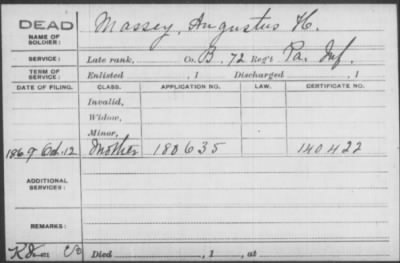 DEAD
NAME OF SOLDIER: Massey, Augustus H.
SERVICE: Late rank, Co. B, 72 Reg't Pa. Inf.
TERM OF SERVICE: Enlisted , 1 Discharged , 1
DATE OF FILING. CLASS. APPLICATION NO. LAW. CERTIFICATE NO.
Invalid,
Widow,
Minor,
1869 Oct. 12 Mother 180635 140422
ADDITIONAL SERVICES:
REMARKS:
Died , 1 , at